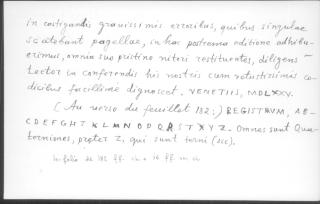 in castigandis gravissimis erroribus, quibus singulae
scatebant pagellae, in hac postrema editione adhibu-
erimus, omnia suo pristino nitori restituentes, diligens
Lector in conferendis his nostris cum vetustissimis co-
dicibus facillime dignoscet. VENETIIS, MDLXXV.
(Au verso du feuillet 182:) REGISTRUM, AB-
CDEFGHIKLMNOPQRSTXYZ. Omnes sunt Qua-
terniones, praeter Z, qui sunt terni (sic).
In folio de 182 ff. ch.